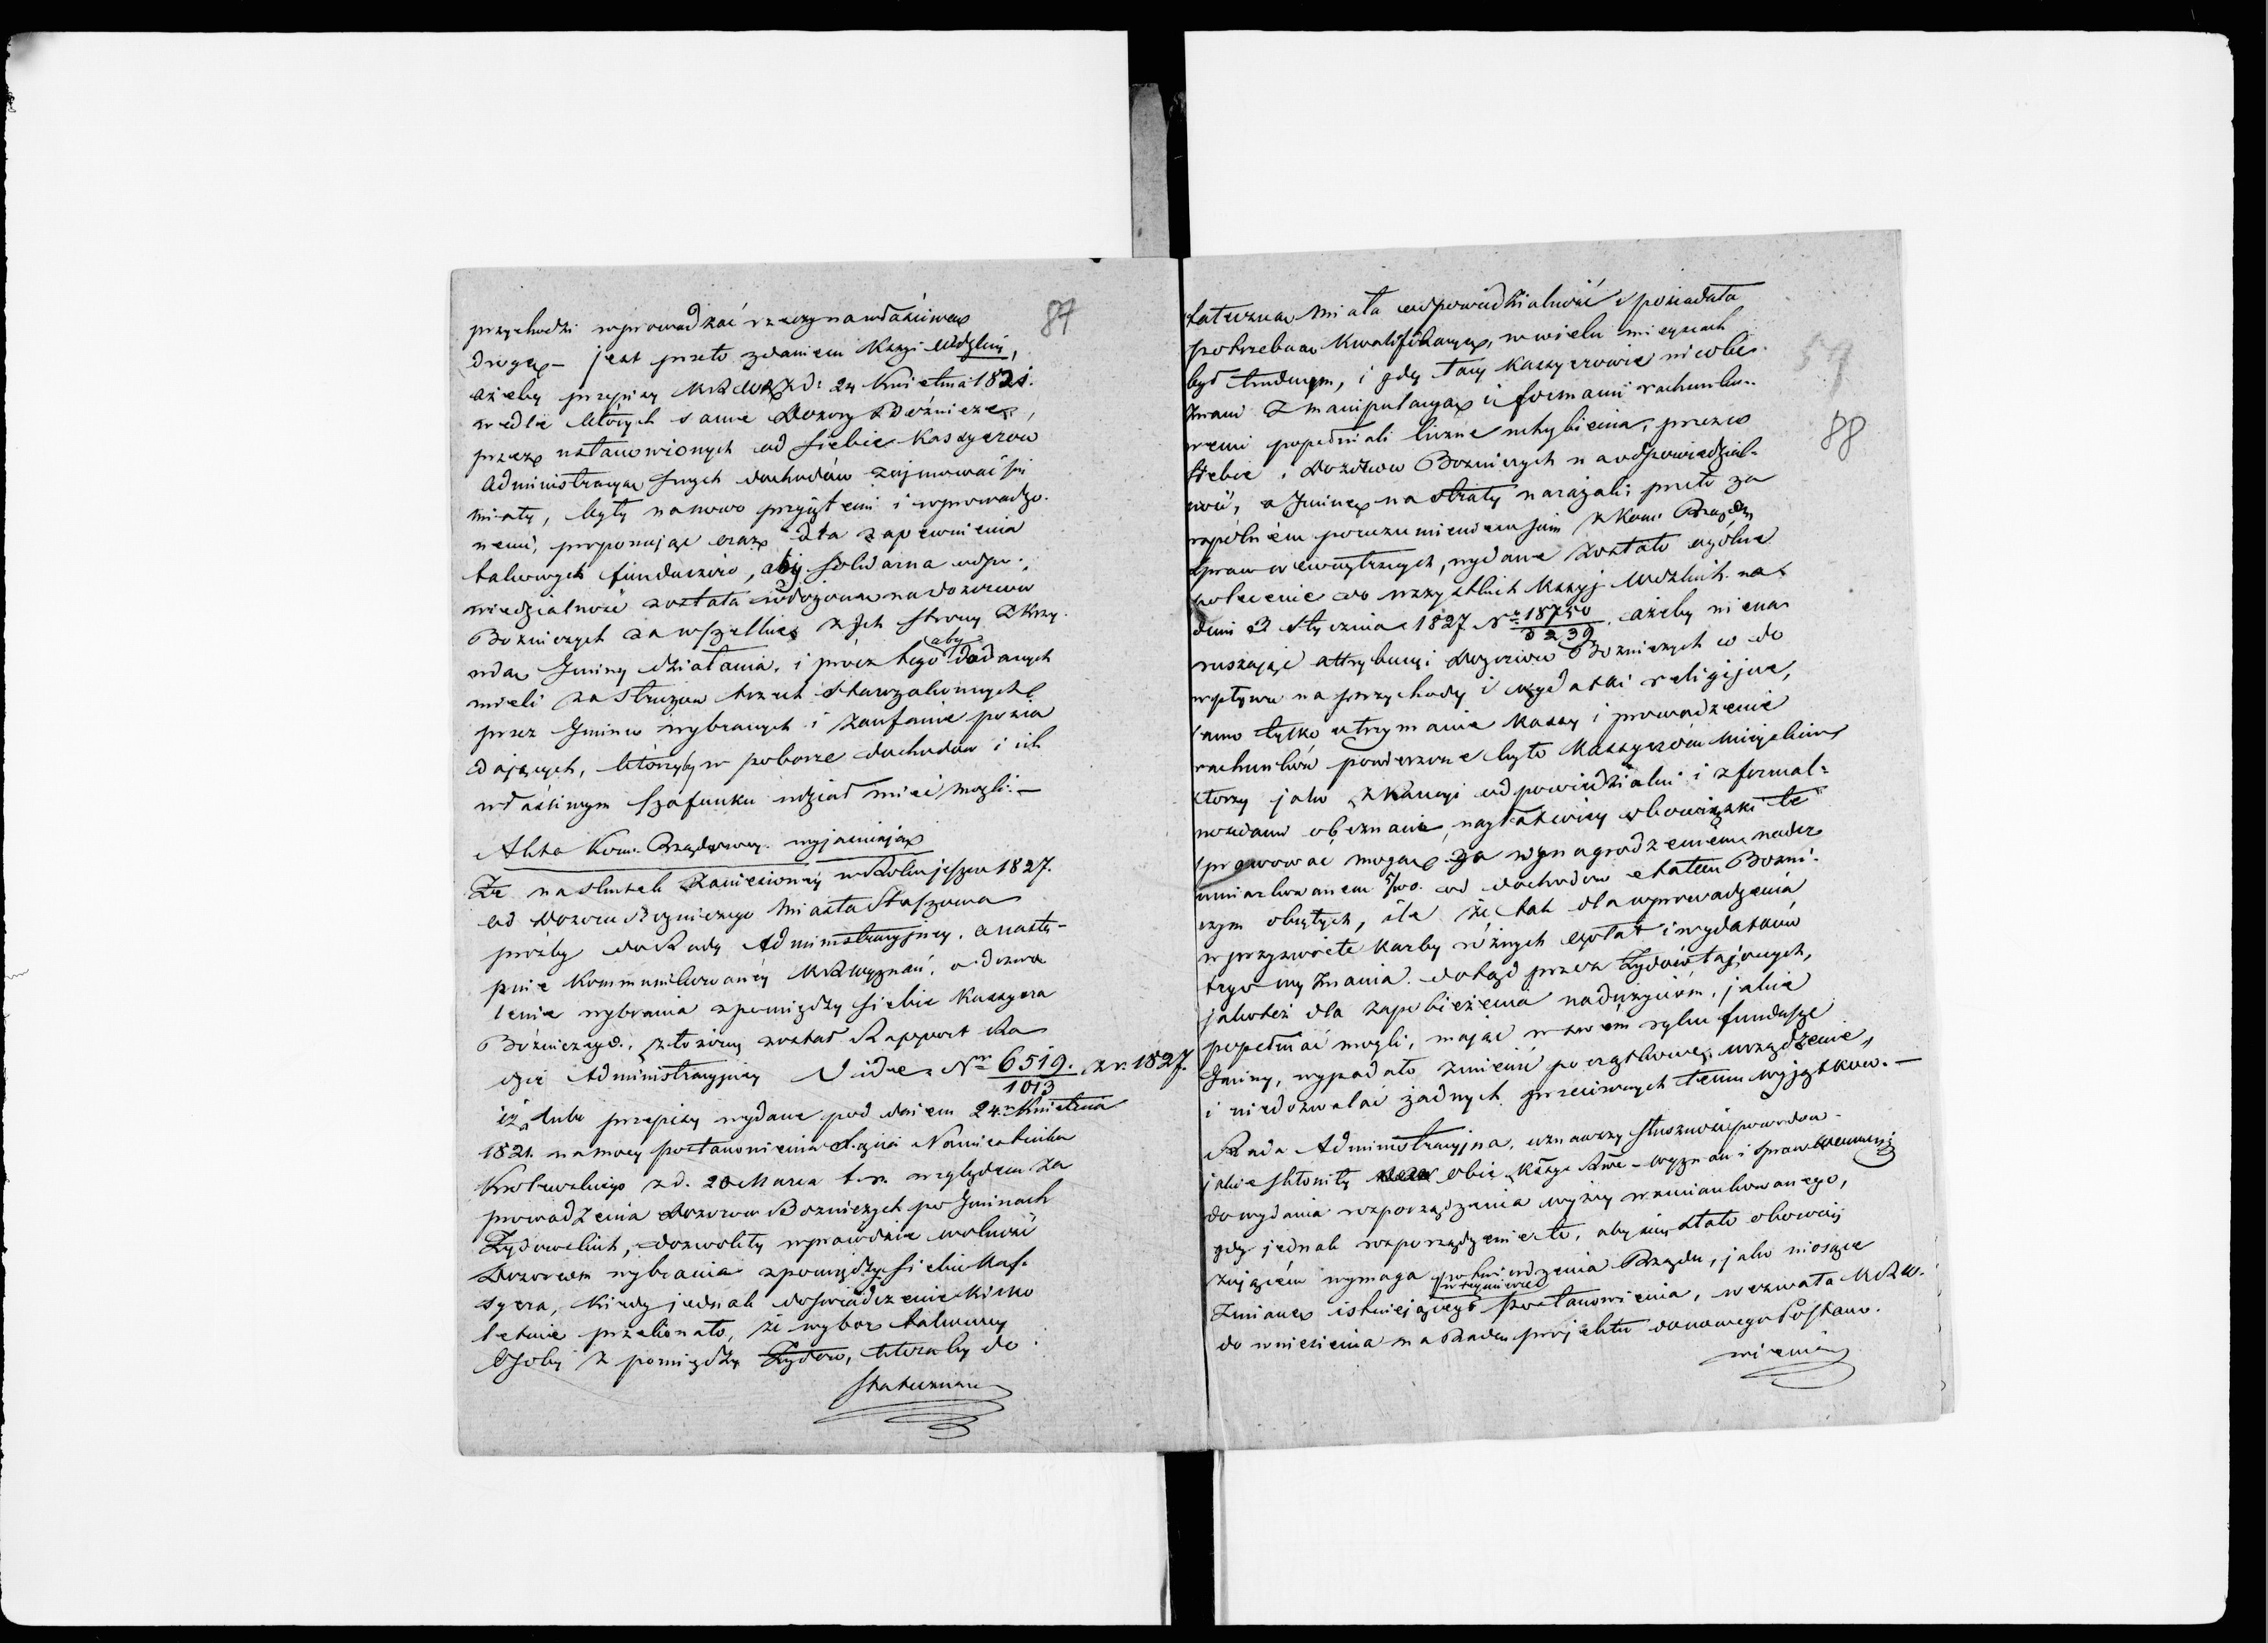 87
przychodzi wprowadzać rzeczy na właściwą
drogę – jest przeto zdaniem Kssyi Wdzkiéj,
ażeby przepisy KRWR z d: 24 Kwietnia 1821.
wedle których same Dozory Bóżnicze,
przez ustanowionych od siebie Kassyerów
Administracyą swych dochodów zajmować się
miały, były na nowo przyjętemi i wprowadzo-
nemi, proponując oraz dla zapewnienia
takowych funduszów, aby solidarna odpo-
wiedzialność została włożona na dozorców
Bożniczych za wszelkie z ich strony z Krzy-
wdą Gminy działania, i prócz tego aby dodanych
mieli za stróżów trzech starozakonnych
przez Gminę wybranych i zaufanie posia
dających, którzyby w poborze dochodów i ich
właściwym szafunku udział mieć mogli. –
Akta Kom: Rządowey wyjaśniają
Że na skutek zaniesionéj w Roku jeszcze 1827.
od Dozoru Bożniczego Miasta Staszowa
prośby do Rady Administracyjnéj, a nastę-
pnie kommunikowanéj KRWyznań, o dozwo
lenie wybrania z pomiędzy siebie Kassyera
Bóżniczego, złożony został Rapport Ra
dzie Administracyjnéj Vide Nr 6519./1013 z r. 1827.
iż lubo przepisy wydane pod dniem 24. Kwietnia
1821. na mocy postanowienia Xięcia Namiestnika
Królewskiego z d. 20 Marca t. r. względem za
prowadzenia Dozorów Bożniczych po Gminach
Żydowskich, dozwoliły wprawdzie wolność
Dozorom wybrania z pomiędzy siebie Kas-
syera, kiedy jednak doświadczenie kilko
letnie przekonało, że wybór takowéj
Osoby z pomiędzy Żydów, któraby do
stateczną
88
tateczną miała odpowiedzialność i posiadała
potrzebną Kwalifikacyą, w wielu miejscach
był trudnym, i gdy tacy Kassyerowie nieobe-
znani z manipulacyą i formami rachunko-
wemi popełniali liczne uchybienia, przez co
siebie i Dozorców Bożniczych na odpowiedzial-
ność, a Gminę na straty narażali; przeto za
wspólném porozumieniem się z Kom: Rządową
Spraw Wewnętrznych, wydane zostało ogólne
polecenie do wszystkich Kssyj Wdzkich na
dniu 3 Stycznia 1827 Nr 18750/3239, ażeby niena
ruszając attrybucyi Dozorów Bożniczych co do
wpływu na przychody i wydatki religijne,
samo tylko utrzymanie Kassy i prowadzenie
rachunków powierzone było Kassyerom Mieyskim,
którzy jako z Kaucyi odpowiedzialni i z formal-
nościami obeznani, najłatwiéj obowiązki te
sprawować mogą za wynagrodzeniem nader
umiarkowanem 5/100. od dochodów etatem Bożni-
czym objętych, ile że tak dla wprowadzenia
w przyzwoite karby różnych opłat i wydatków
tego wyznania dotąd przez Żydów tajonych,
jakoteż dla zapobieżenia nadużyciom, jakie
popełniać mogli, mając w swoim ręku fundusze
Gminy, wypadało zmienić początkowe urządzenie,
i niedozwalać żadnych przeciwnych temu wyjątków. –
Rada Administracyjna, uznawszy słuszność powodów
jakie skłoniły obie Kssye Rwe – Wyznań i Spraw Wewnęz.
do wydania rozporządzenia wyżéj wzmiankowanego,
gdy jednak rozporządzenie to, aby się stało obowią
zującém wymaga potwierdzenia Rządu, jako niosące
zmianę istniejącego w téj mierze postanowienia, wezwała KRW.
do wniesienia na Radę projektu do nowego Postano-
wienia